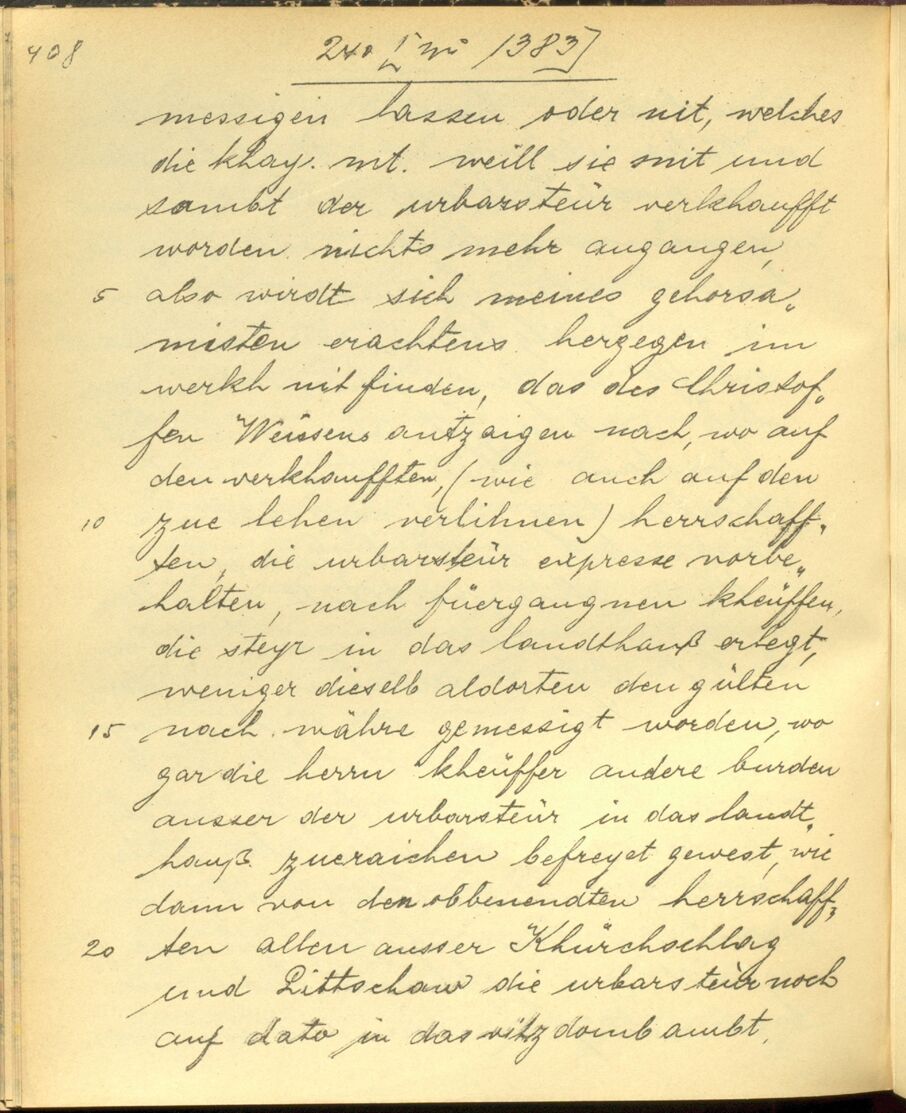 408
240 [ 383]
messigen lassen oder nit, welches
die khay. mt. weill sie mit und
sambt der urbarsteür verkhaufft
worden nichts mehr angangen,
5 also wirdt sich meines gehorsa„
misten erachtens hergegen im
werkh nit finden, das des Christof„
fen Weissens antzaigen nach, wo auf
den verkhaufften, (wie auch auf den
10 zue lehen verlihnen) herrschaff„
ten, die urbarsteür expresse vorbe„
halten, nach füergangnen kheüffen,
die steyr in das landthauß erlegt,
weniger dieselb aldorten den gülten
15 nach währe gemessigt worden, wo
gar die herrn kheüffer andere burden
ausser der urbarsteür in das landt„
hauß zueraichen befreyet gewest, wie
dann von den obbenendten herrschaff„
20 ten allen ausser Khürchschlag
und Littschaw die urbarsteür noch
auf dato in das vitzdombambt,